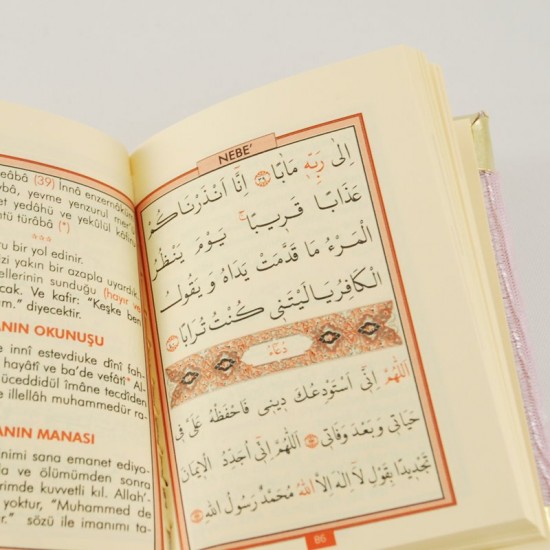 eâbâ (39) İnnâ enzernâküm
bâ, yevme yenzurul mer'ü
et yedâhü ve yekûlül kâfiru
ntü türâbâ (*)
***
ru bir yol edinir.
izi yakın bir azapla uyardık
ellerinin sunduğu (hayır ve
cak. Ve kafir: "Keşke ben
m." diyecektir.
ANIN OKUNUŞU
e innî estevdiuke dînî fah-
hayâtî ve ba'de vefâtî* Al-
üceddidül îmâne tecdîden
e illellâh muhammedür ra-
ANIN MANASI
nimi sana emanet ediyo-
a ve ölümümden sonra
rimde kuvvetli kıl. Allah'-
yoktur, "Muhammed de
r." sözü ile imanımı ta-
NEBE'
اِلٰى رَبِّهٖ مَاٰبًا ﴿٣٩﴾ اِنَّٓا اَنْذَرْنَاكُمْ
عَذَابًا قَرٖيبًاۚ يَوْمَ يَنْظُرُ
الْمَرْءُ مَا قَدَّمَتْ يَدَاهُ وَيَقُولُ
الْكَافِرُ يَالَيْتَنٖى كُنْتُ تُرَابًا ﴿٤٠﴾
دُعَاءْ
اَللّٰهُمَّ اِنّٖى اَسْتَوْدِعُكَ دٖينٖى فَاحْفَظْهُ عَلَىَّ فٖى
حَيَاتٖى وَبَعْدَ وَفَاتٖى اَللّٰهُمَّ اِنّٖى اُجَدِّدُ الْاٖيمَانَ
تَجْدٖيدًا بِقَوْلِ لَا اِلٰهَ اِلَّا اللّٰهُ مُحَمَّدٌ رَسُولُ اللّٰهِ
86